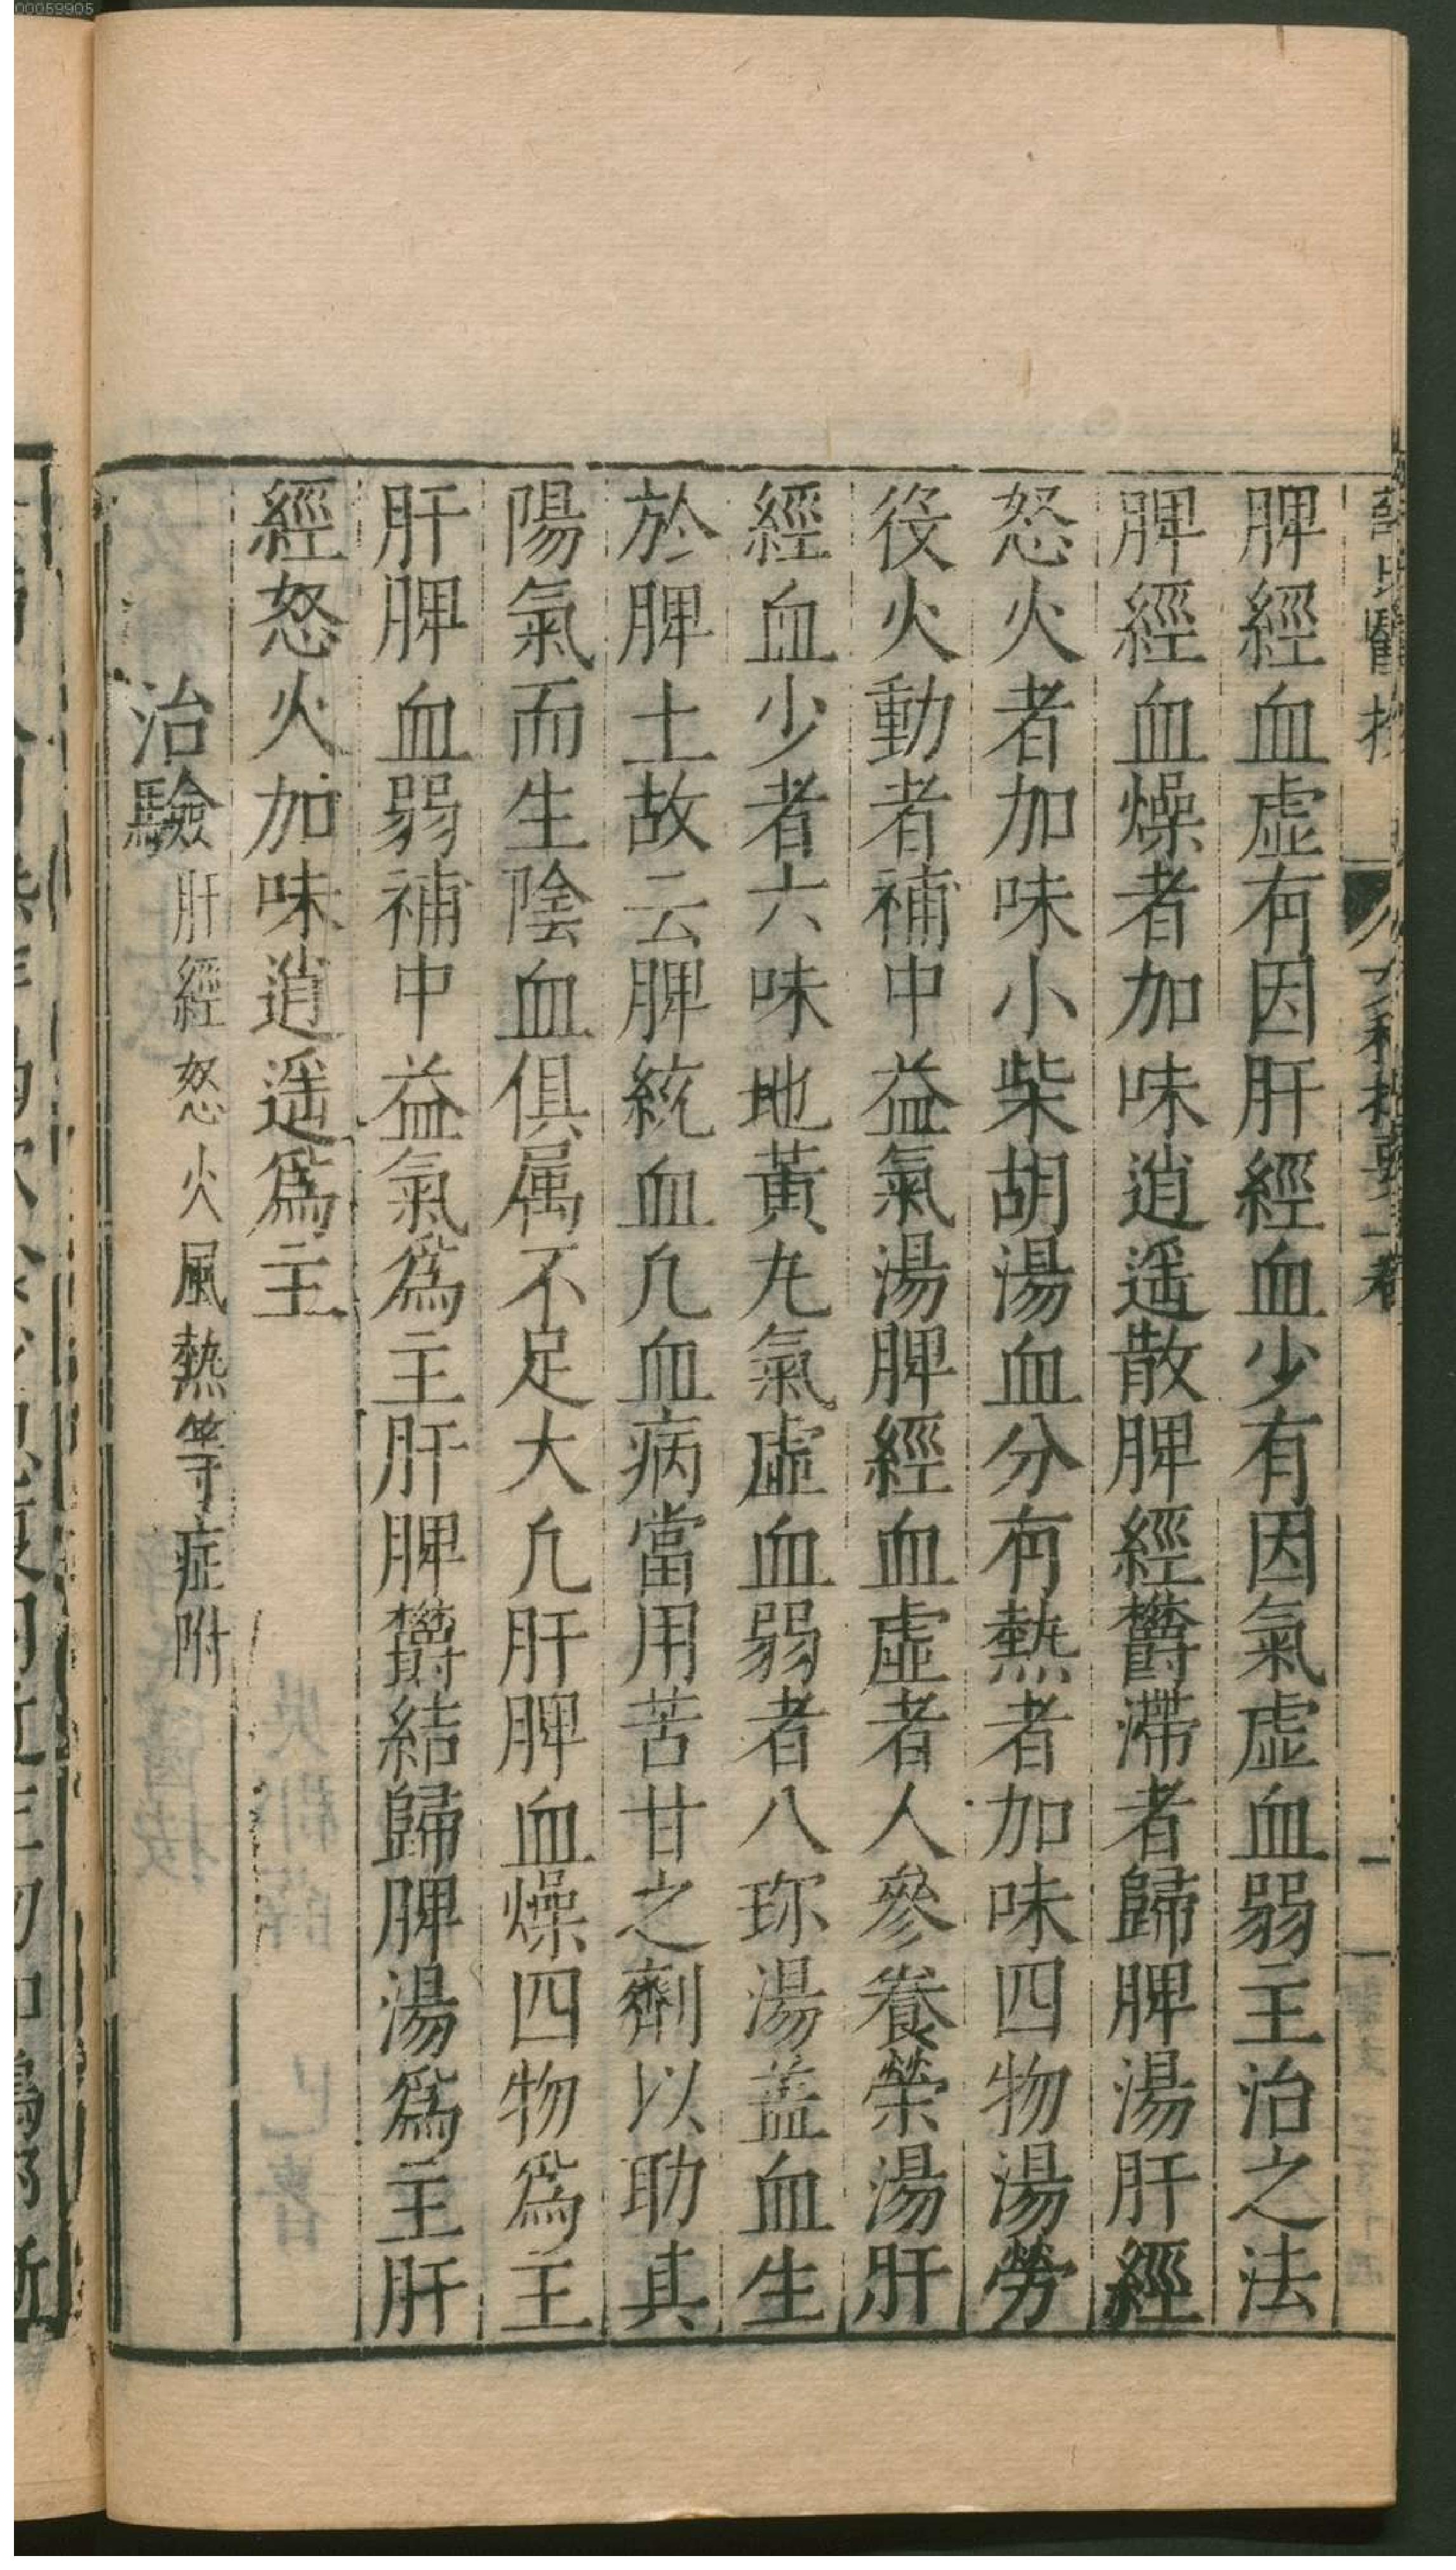 00059905
脾經血虛有因肝經血少有因氣虛血弱主治之法
脾經血燥者加味逍遥散脾經欝滯者歸脾湯肝經
怒火者加味小柴胡湯血分有熱者加味四物湯勞
役火動者補中益氣湯脾經血虛者人參養榮湯肝
經血少者六味地黃丸氣虛血弱者八珎湯葢血生
於脾土故云脾統血凢血病當用苦甘之劑以助真
陽氣而生陰血俱属不足大凢肝脾血燥四物爲主
肝脾血弱補中益氣爲主肝脾欝結歸脾湯爲主肝
經怒火加味逍遥爲主
治驗肝經怒火風熱等症附